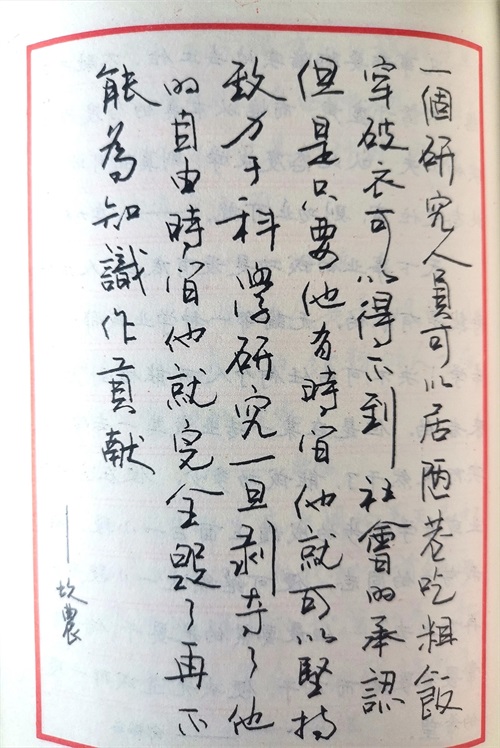 一個研究人員可以居陋巷吃粗飯
穿破衣可以得不到社會的承認
但是只要他有時间他就可以堅持
致力于科學研究一旦剥夺了他
的自由時间他就完全毁了再不
能為知識作貢献
——坎農